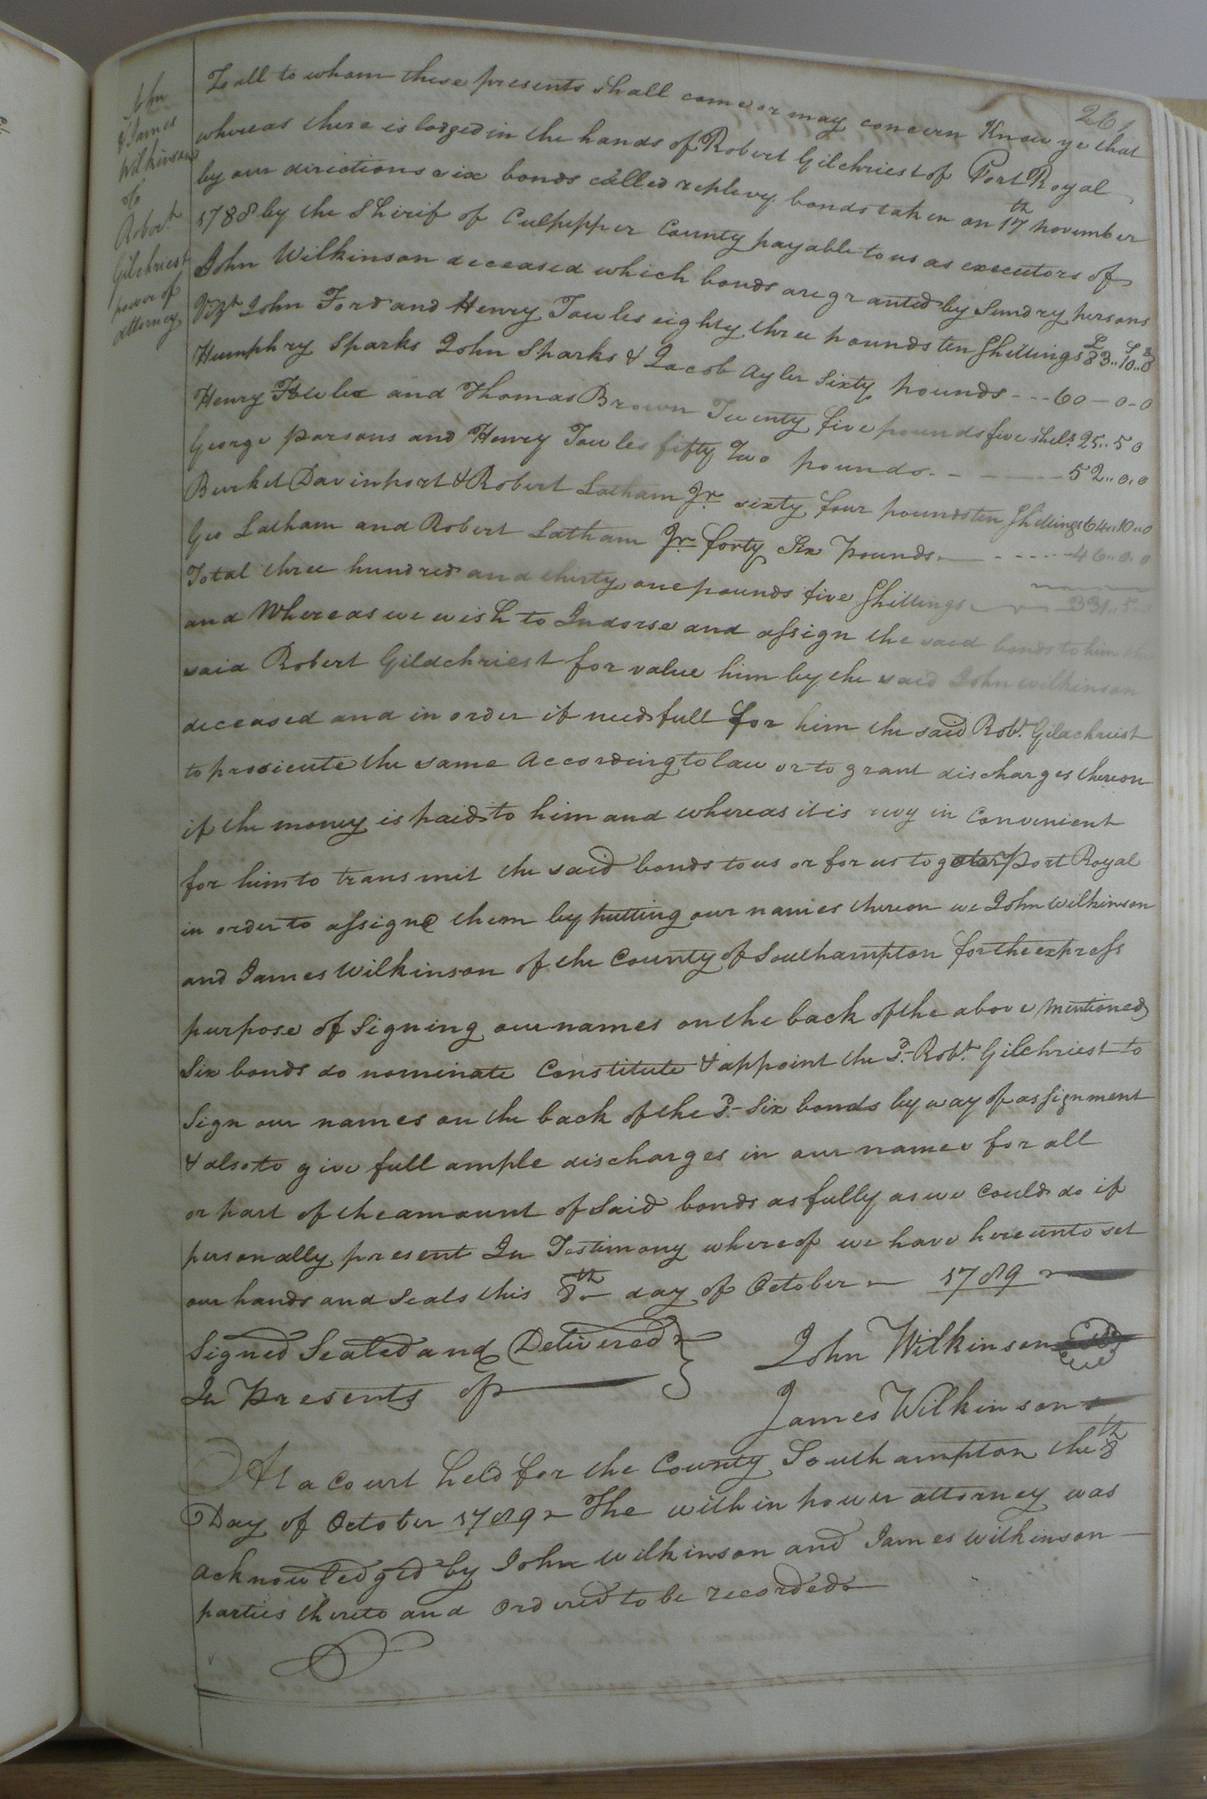 261
Jhn
& James
Wilkinson
to
Robert
Gilchriest
power of
attorney
To all to whom these presents shall come or may concern Know ye that
whereas there is lodged in the hands of Robert Gilchriest of Port Royal
by our directions six bonds called replevy bonds taken on 17th November
1788 by the Shirif of Culpepper County payable to us as executors of
John Wilkinson deceased which bonds are granted by Sundry persons
Vizt John Ford and Henry Towles eighty three pounds ten Shillings £83..10..0
Humphry Sparks John Sparks & Jacob Ayler Sixty pounds - - - 60 - 0 - 0
Henry Towles and Thomas Brown Twenty five pounds five Shils 25..5 0
George parsons and Henry Towles fifty Two pounds - - - - 52..0..0
Burket Davinport & Robert Latham Jr sixty four pounds ten Shillings 64..10..0
Geo Latham and Robert Latham Jr forty Six pounds - - - - - 46..0..0
Total three hundred and thirty one pounds five Shillings 331..5
and Whereas we wish to Indorse and assign the said bonds to him the
said Robert Gildchriest for value him by the said John Wilkinson
deceased and in order if needfull for him the said Robt Gilachriest
to prosicute the same According to law or to grant discharges thereon
if the money is paid to him and whereas it is in Convenient
for him to transmit the said bonds to us or for us to go to Port Royal
in order to assigne them by putting our names thereon we John Wilkinson
and James Wilkinson of the County of Southampton for the express
purpose of Signing our names on the back of the above Mentioned
Six bonds do nominate Constitute & appoint the Sd Robt Gilchriest to
Sign our names on the back of the Sd Six bonds by way of assignment
& also to give full ample discharges in our names for all
or part of the amount of Said bonds as fully as we Could do if
personally present In Testimony whereof we have hereunto set
our hands and Seals this 8th day of October 1789
Signed Sealed and Delivered }
In Presents of
John Wilkinson
James Wilkinson
At a Court held for the County Southampton the 8th
Day of October 1789 The within power attorney was
acknowledged by John Wilkinson and James Wilkinson
parties thereto and Ordered to be recorded